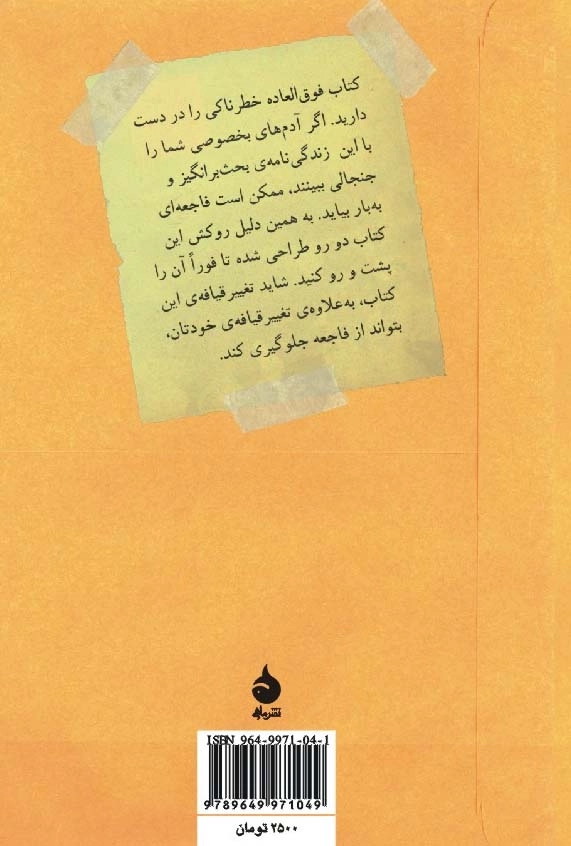 کتاب فوق‌العاده خطرناکی را در دست
دارید. اگر آدم‌های بخصوصی شما را
با این زندگی‌نامه‌ی بحث‌برانگیز و
جنجالی ببینند، ممکن است فاجعه‌ای
به‌بار بیاید. به همین دلیل روکش این
کتاب دو رو طراحی شده تا فوراً آن را
پشت و رو کنید. شاید تغییرقیافه‌ی این
کتاب، به‌علاوه‌ی تغییرقیافه‌ی خودتان،
بتواند از فاجعه جلوگیری کند.
نشرماهی
ISBN 964-9971-04-1
9789649971049
۲۵۰۰ تومان